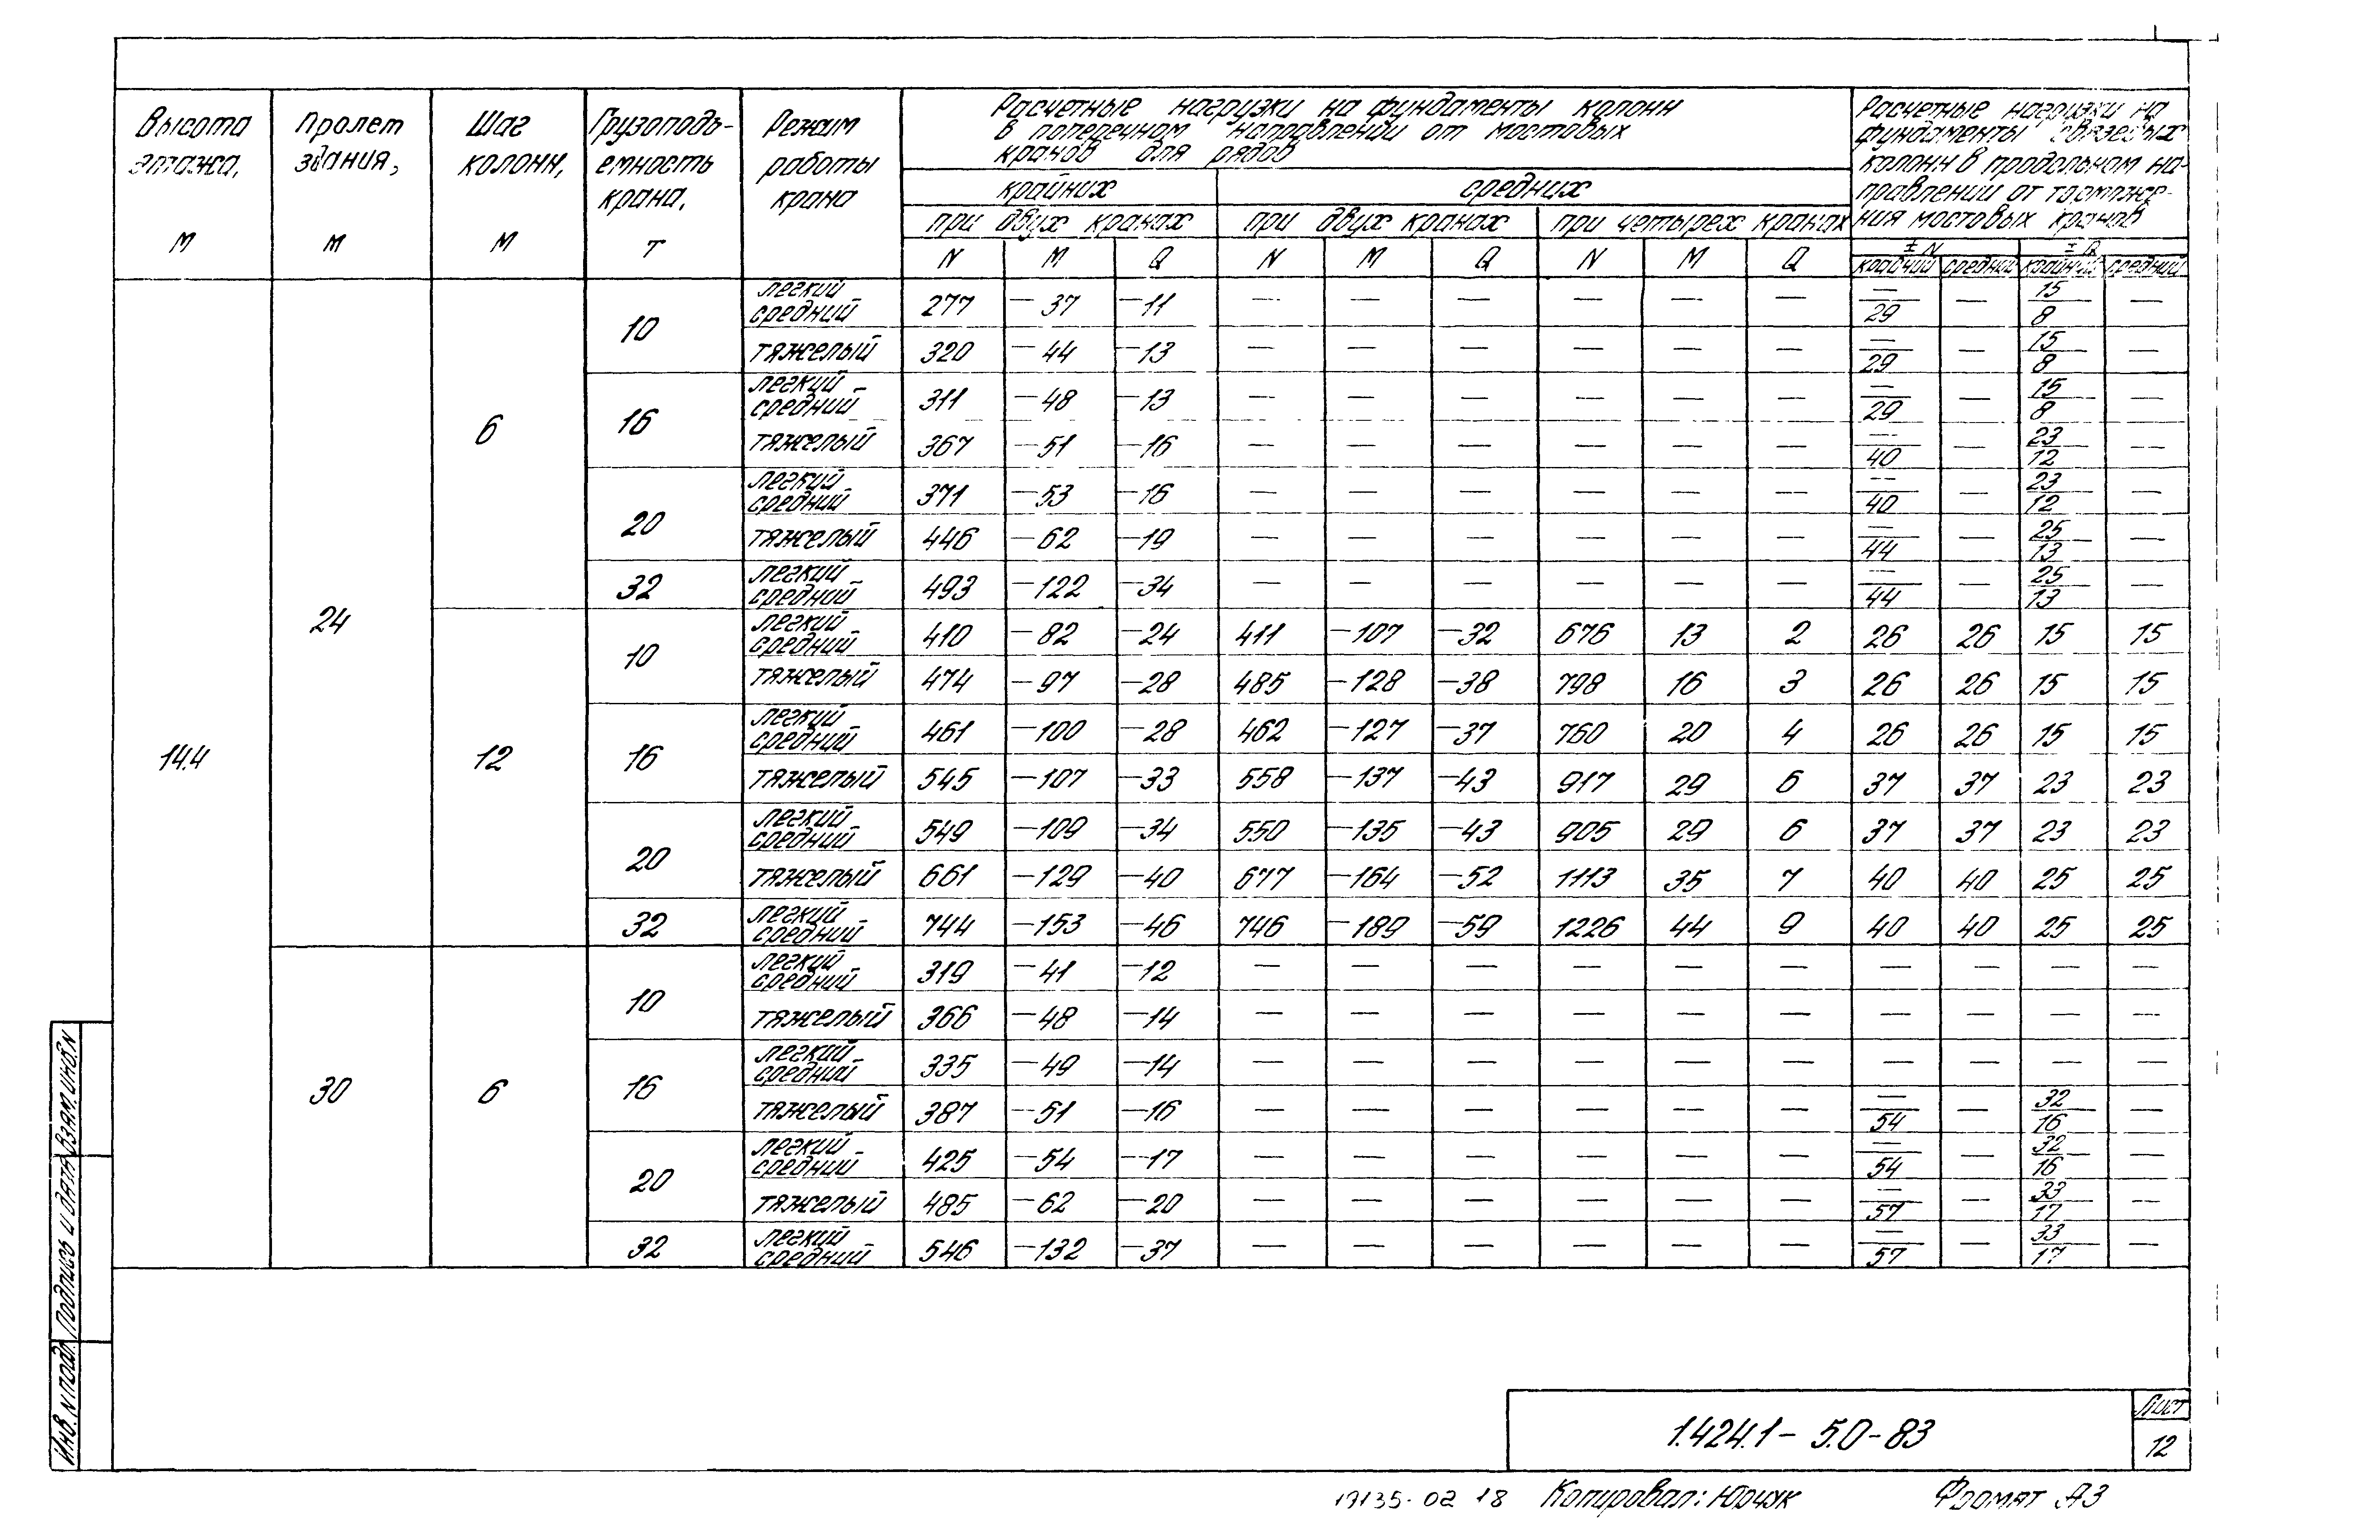 Высота этажа, м
Пролет здания, м
Шаг колонн, м
Грузоподъ-емность крана, т
Режим работы крана
Расчетные нагрузки на фундаменты колонн
в поперечном направлении от мостовых
кранов для рядов
крайних средних
при двух кранах при двух кранах при четырех кранах
N M Q N M Q N M Q
Расчетные нагрузки на
фундаменты связевых
колонн в продольном на-
правлении от торможе-
ния мостовых кранов
± N ± Q
крайний средний крайний средний
14.4 24 6 10 легкий средний 277 —37 —11 — — — — — — —/29 — 15/8 —
тяжелый 320 —44 —13 — — — — — — —/29 — 15/8 —
16 легкий средний 311 —48 —13 — — — — — — —/29 — 15/8 —
тяжелый 367 —51 —16 — — — — — — —/40 — 23/12 —
20 легкий средний 371 —53 —16 — — — — — — —/40 — 23/12 —
тяжелый 446 —62 —19 — — — — — — —/44 — 25/13 —
32 легкий средний 493 —122 —34 — — — — — — —/44 — 25/13 —
12 10 легкий средний 410 —82 —24 411 —107 —32 676 13 2 26 26 15 15
тяжелый 474 —97 —28 485 —128 —38 798 16 3 26 26 15 15
16 легкий средний 461 —100 —28 462 —127 —37 760 20 4 26 26 15 15
тяжелый 545 —107 —33 558 —137 —43 917 29 6 37 37 23 23
20 легкий средний 549 —109 —34 550 —135 —43 905 29 6 37 37 23 23
тяжелый 661 —129 —40 677 —164 —52 1113 35 7 40 40 25 25
32 легкий средний 744 —153 —46 746 —189 —59 1226 44 9 40 40 25 25
30 6 10 легкий средний 319 —41 —12 — — — — — — — — — —
тяжелый 366 —48 —14 — — — — — — — — — —
16 легкий средний 335 —49 —14 — — — — — — — — — —
тяжелый 387 —51 —16 — — — — — — —/54 — 32/16 —
20 легкий средний 425 —54 —17 — — — — — — —/54 — 32/16 —
тяжелый 485 —62 —20 — — — — — — —/57 — 33/17 —
32 легкий средний 546 —132 —37 — — — — — — —/57 — 33/17 —
Инв. N подл. Подпись и дата Взам. инв. N
1.424.1-5.0-83
Лист
12
17135-02 18 Копировал: Юрчук Формат А3